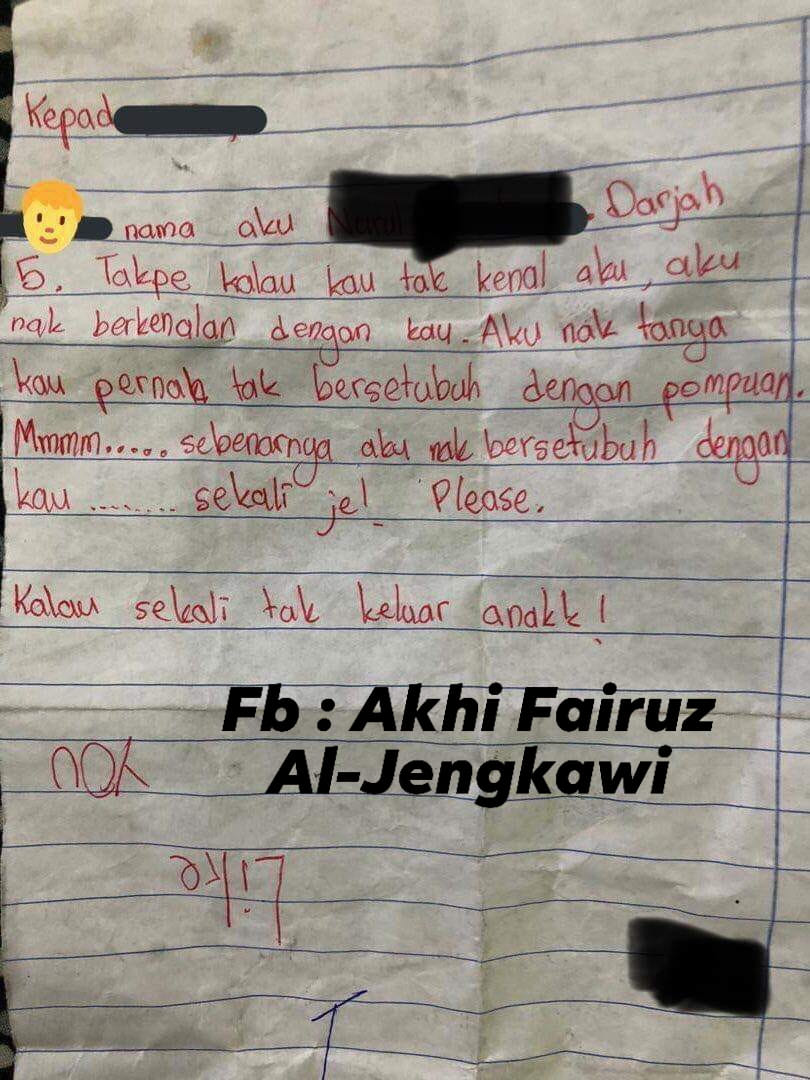 Kepad
nama aku . Darjah
5. Takpe kalau kau tak kenal aku, aku
nak berkenalan dengan kau. Aku nak tanya
kau pernah tak bersetubuh dengan pompuan.
Mmmm..... sebenarnya aku nak bersetubuh dengan
kau ........ sekali je! Please.
Kalau sekali tak keluar anakk!
Fb : Akhi Fairuz
Al-Jengkawi
Like
you